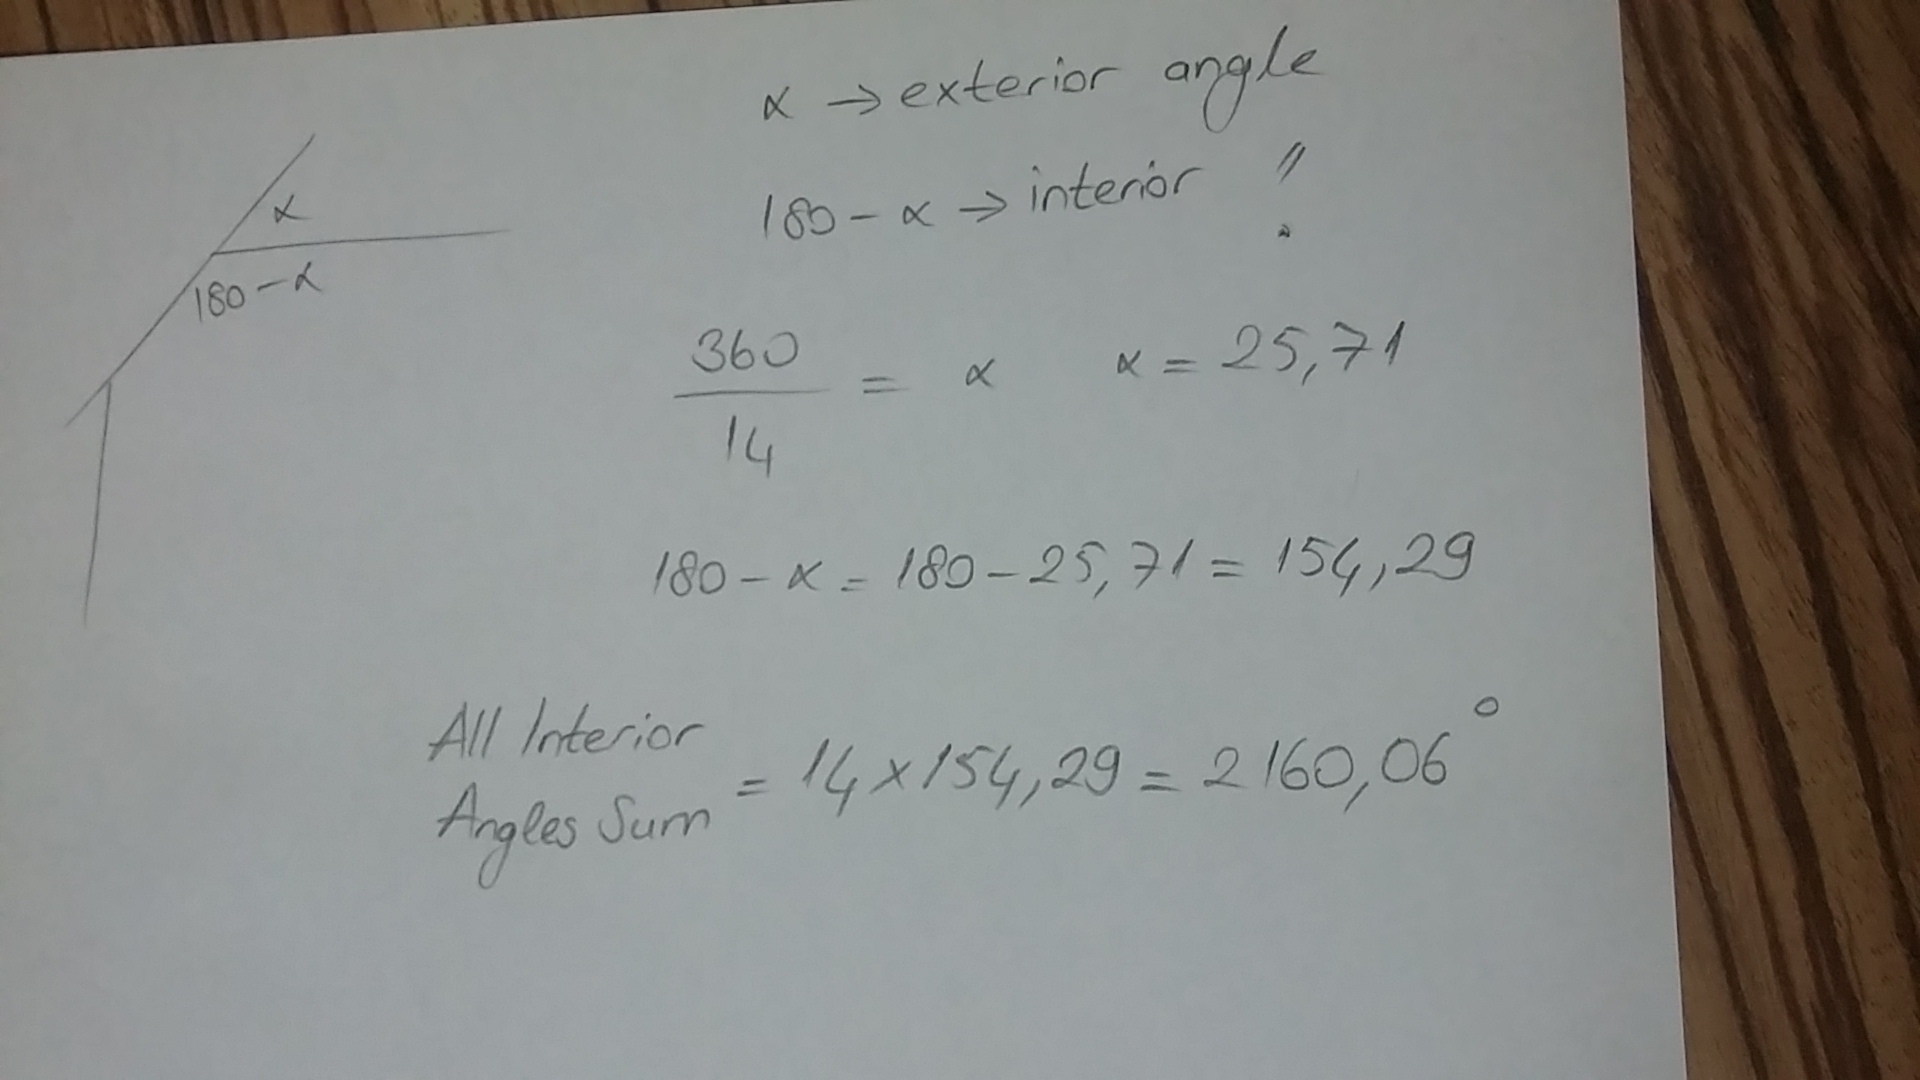 α → exterior angle
180 - α → interior "
α
180 - α
360
14
= α α = 25,71
180 - α = 180 - 25,71 = 154,29
All Interior
Angles Sum = 14 x 154,29 = 2160,06°